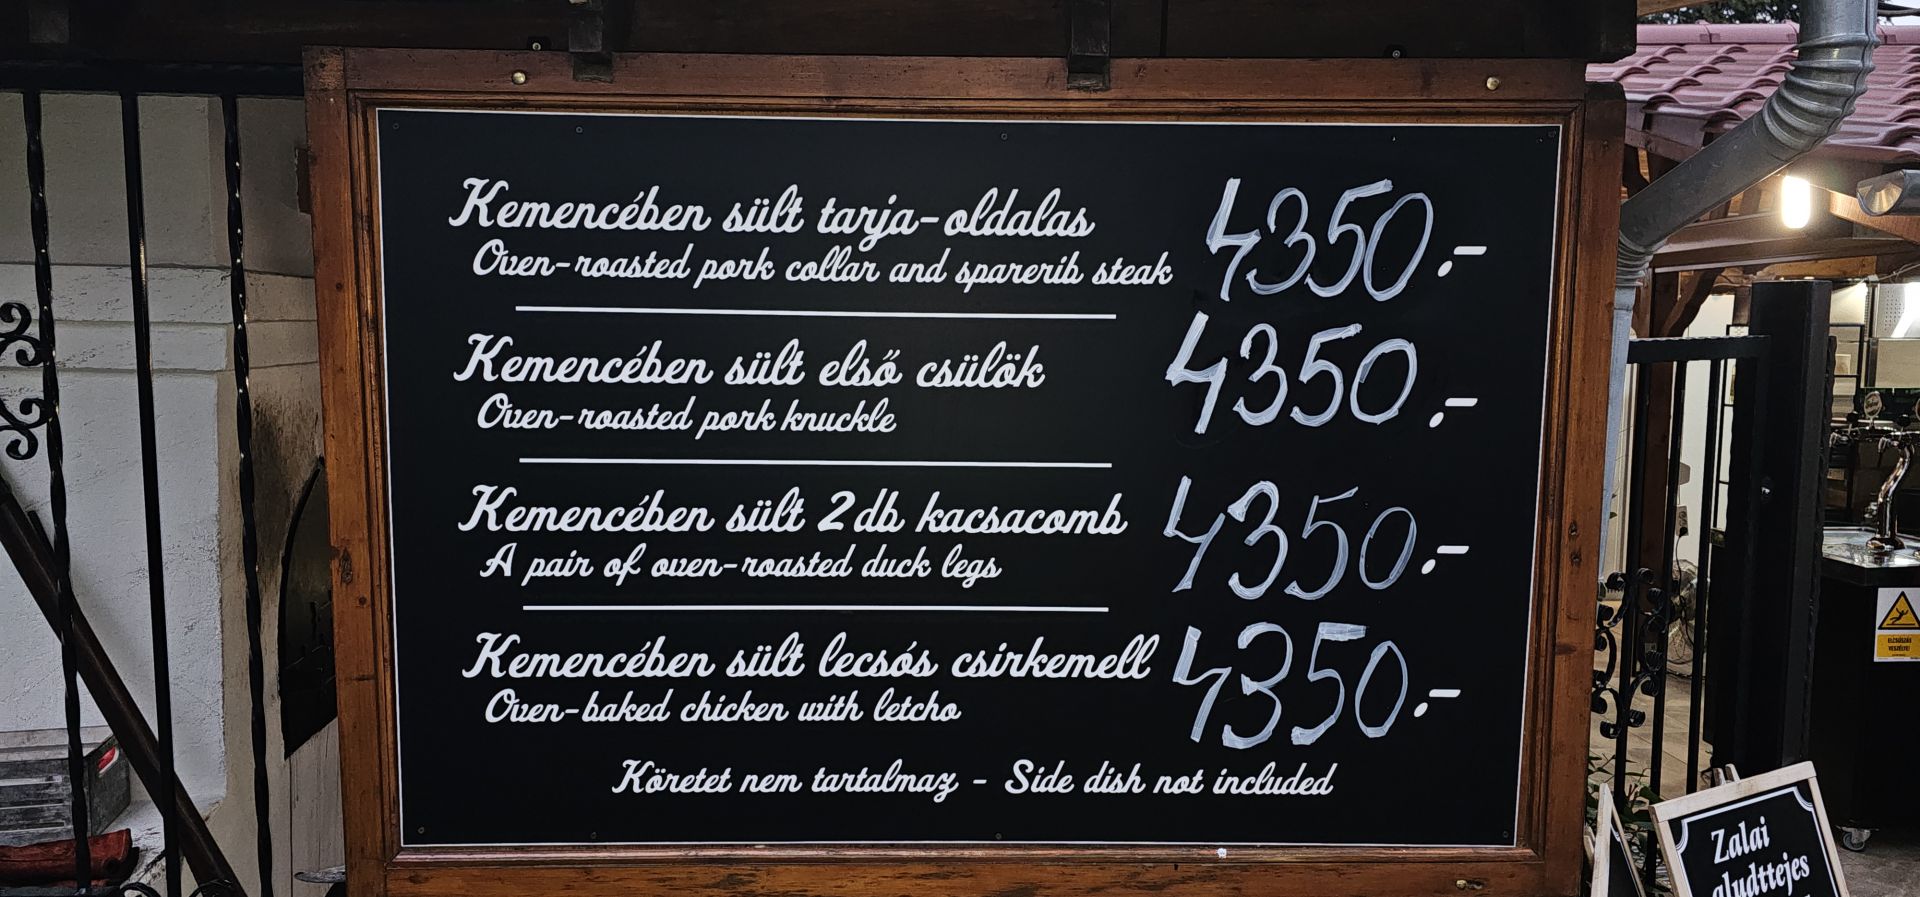 Kemencében sült tarja-oldalas 4350.-
Oven-roasted pork collar and sparerib steak
Kemencében sült első csülök 4350.-
Oven-roasted pork knuckle
Kemencében sült 2 db kacsacomb 4350.-
A pair of oven-roasted duck legs
Kemencében sült lecsós csirkemell 4350.-
Oven-baked chicken with letcho
Köretet nem tartalmaz - Side dish not included
Zalai
aludttejes